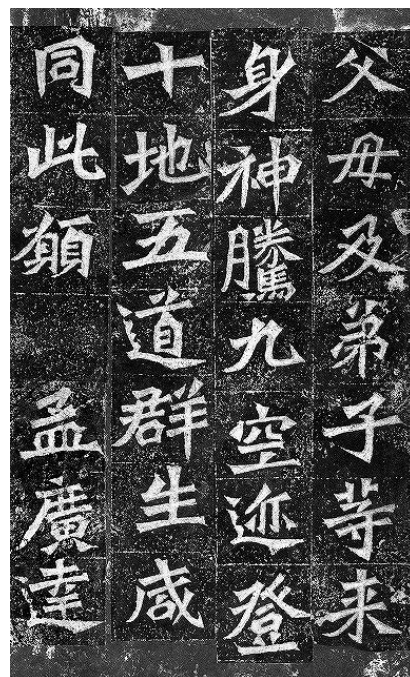 父母及苐子䓁来
身神騰九空迩登
十地五道群生咸
同此願 孟廣達